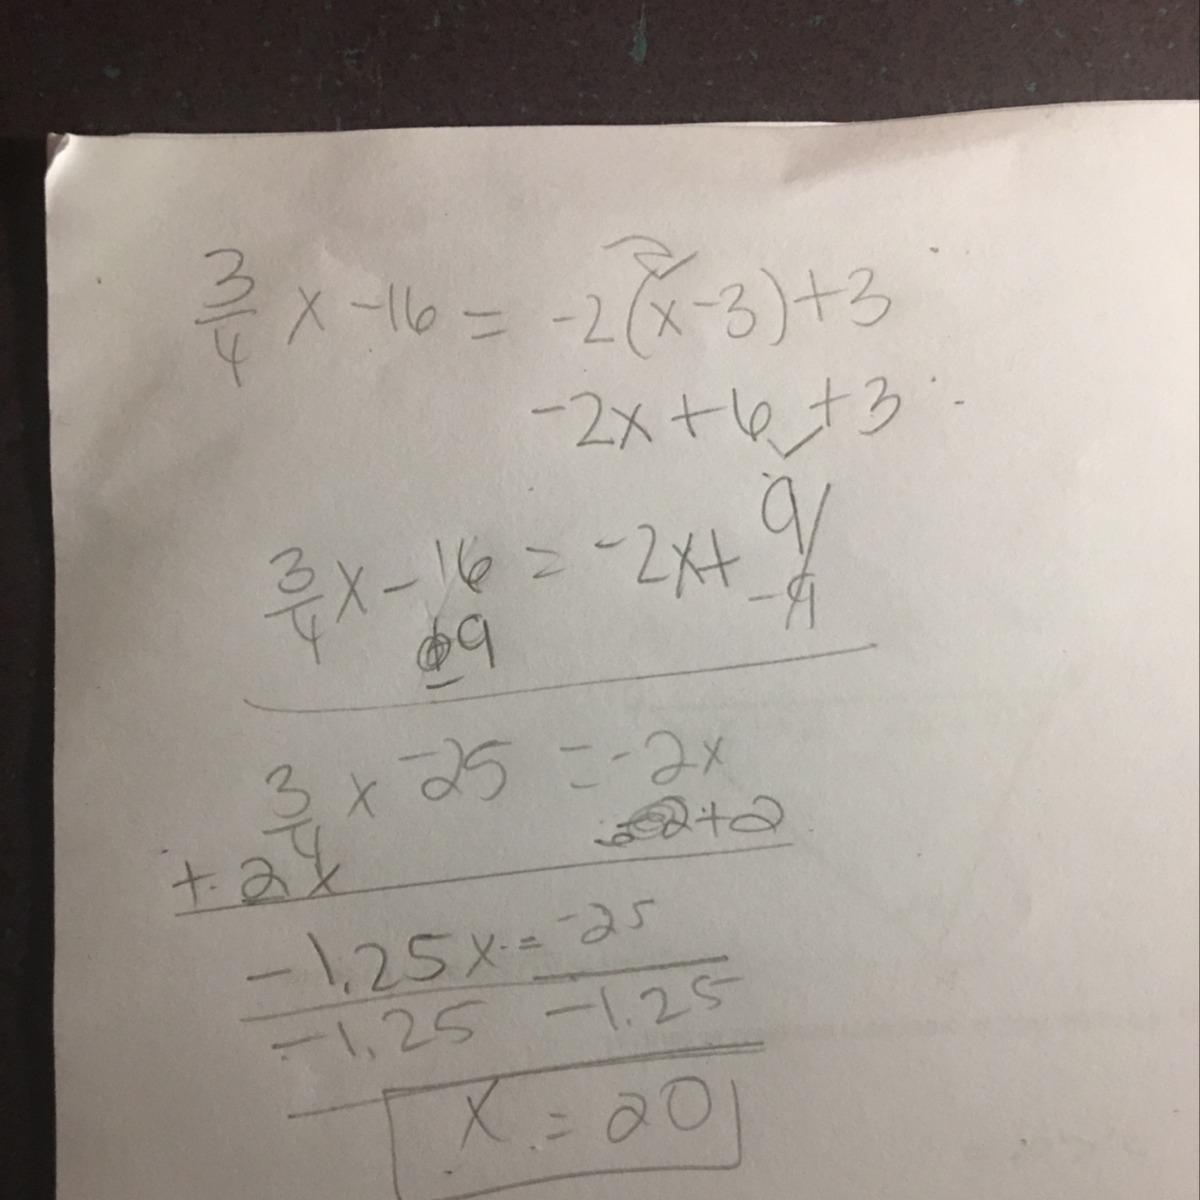 3/4 x - 16 = -2(x-3)+3
-2x + 6 + 3
9
3/4 x - 16 = -2x +
9 -9
3/4 x -25 = -2x
+2
+ 2x
-1.25x = -25
-1.25 -1.25
x = 20